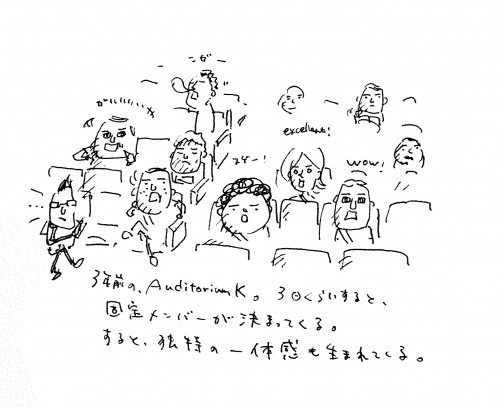 excellent!
wow!
3年前の、Auditorium K。3日くらいすると、
固定メンバーが決まってくる。
すると、独特の一体感も生まれてくる。